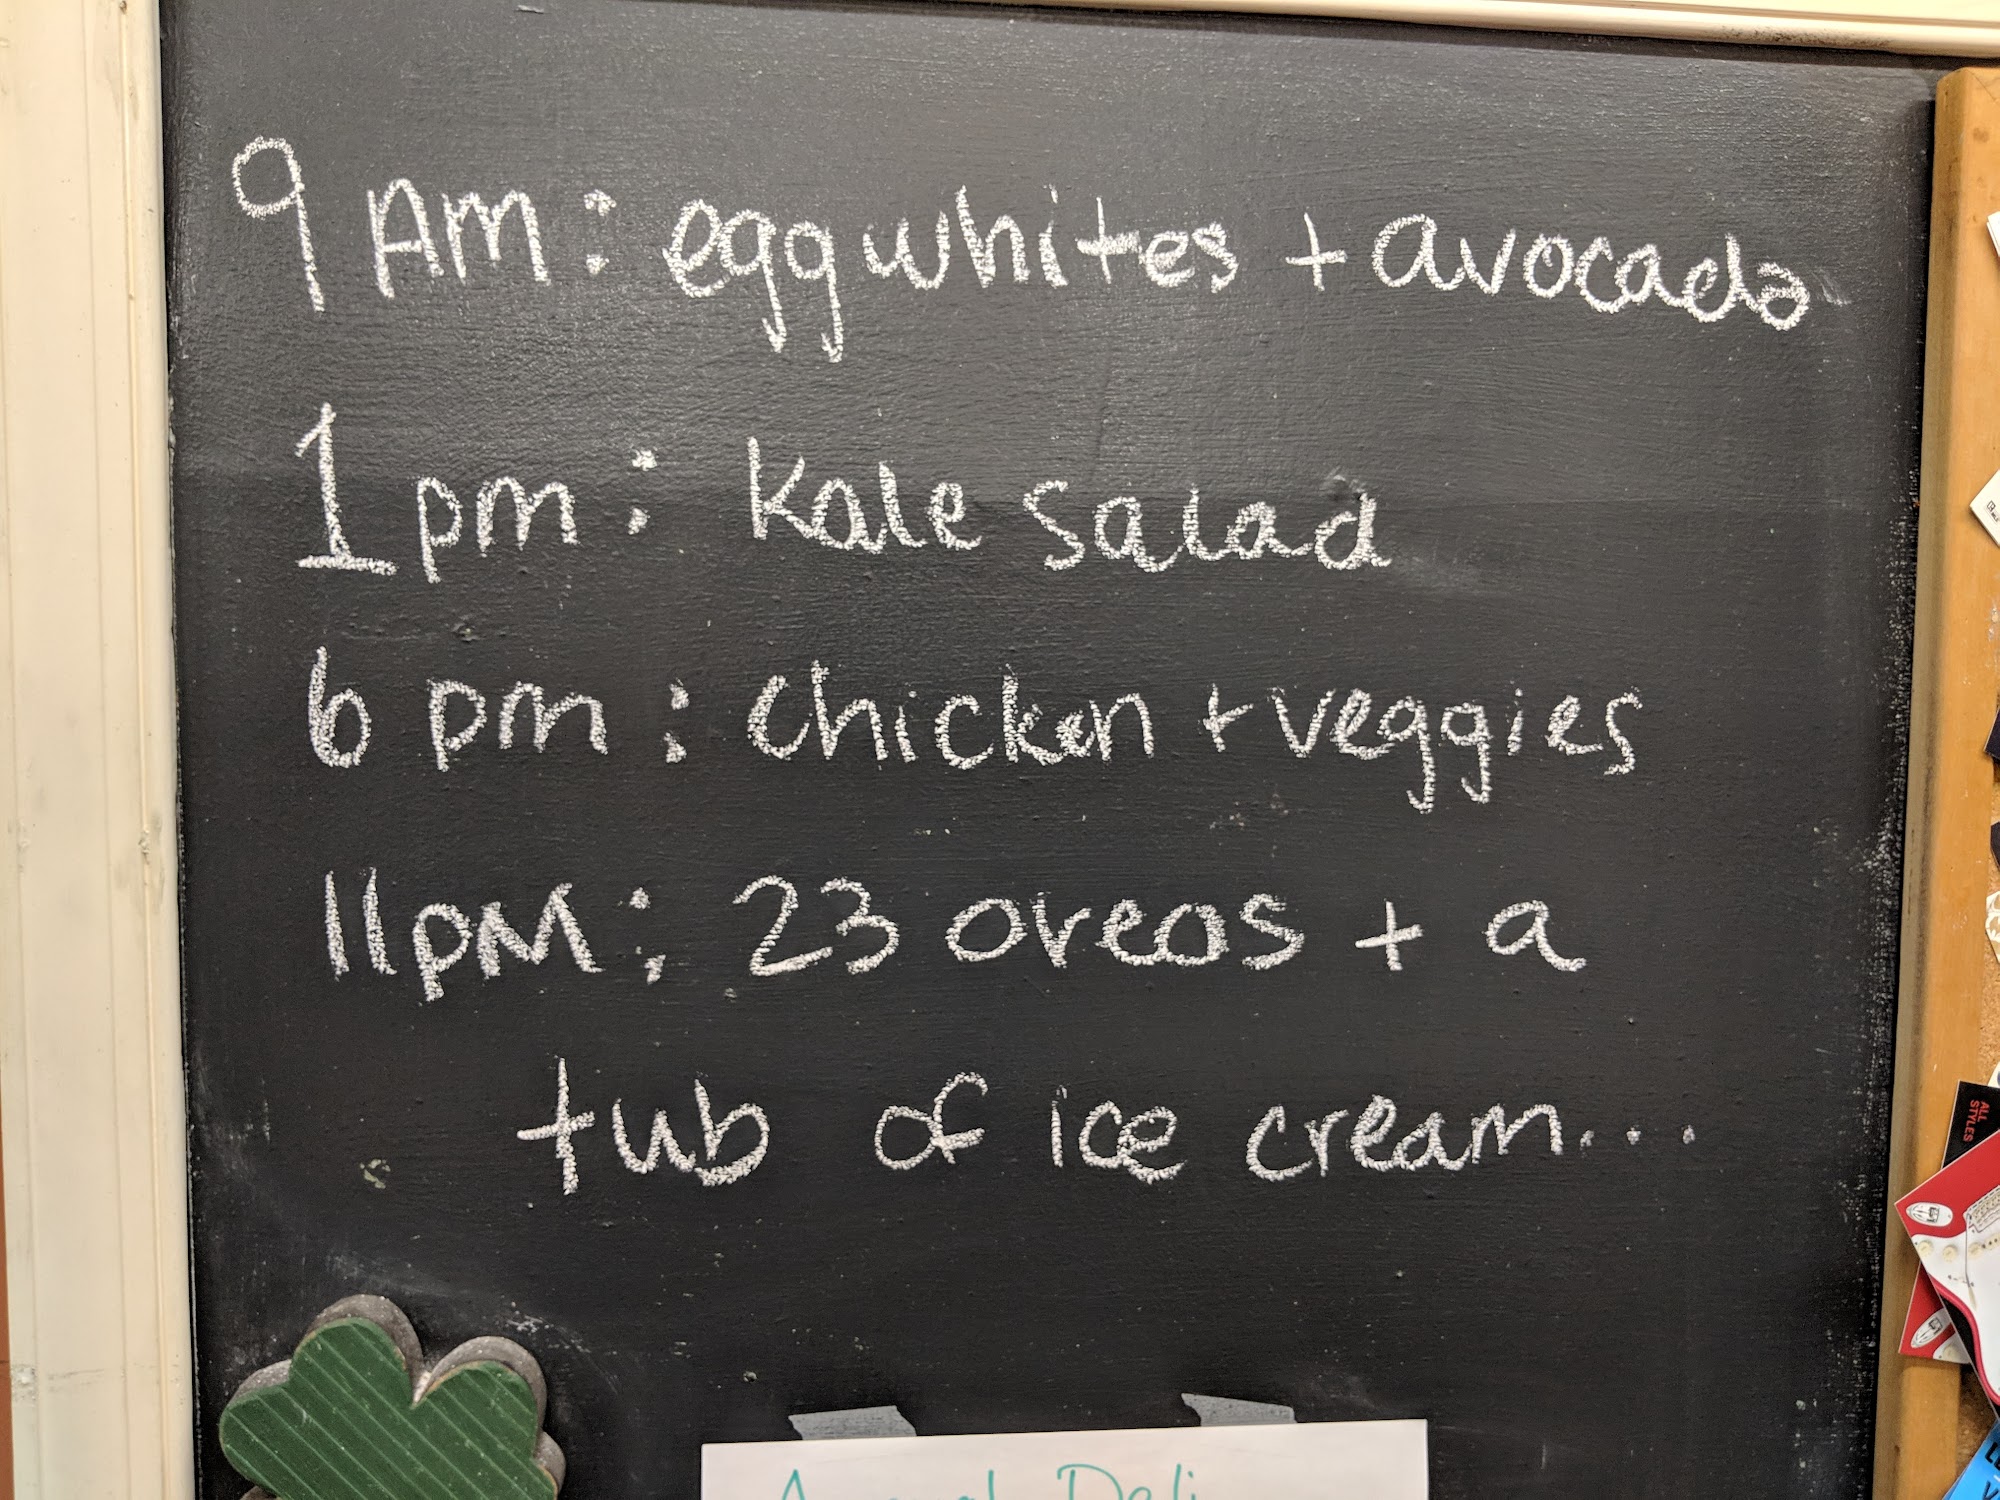 9 AM: egg whites + avocado
1 pm: Kale salad
6 pm: chicken + veggies
11 pM: 23 oreos + a
tub of ice cream...
Deli
ALL
STYLES